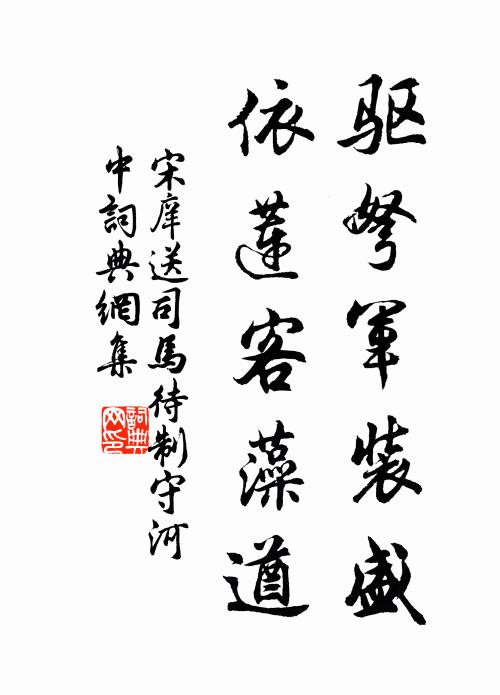 驱弩军装盛
依莲客藻遒
宋庠送司馬待制守河
中詞典網集
詞典
网印